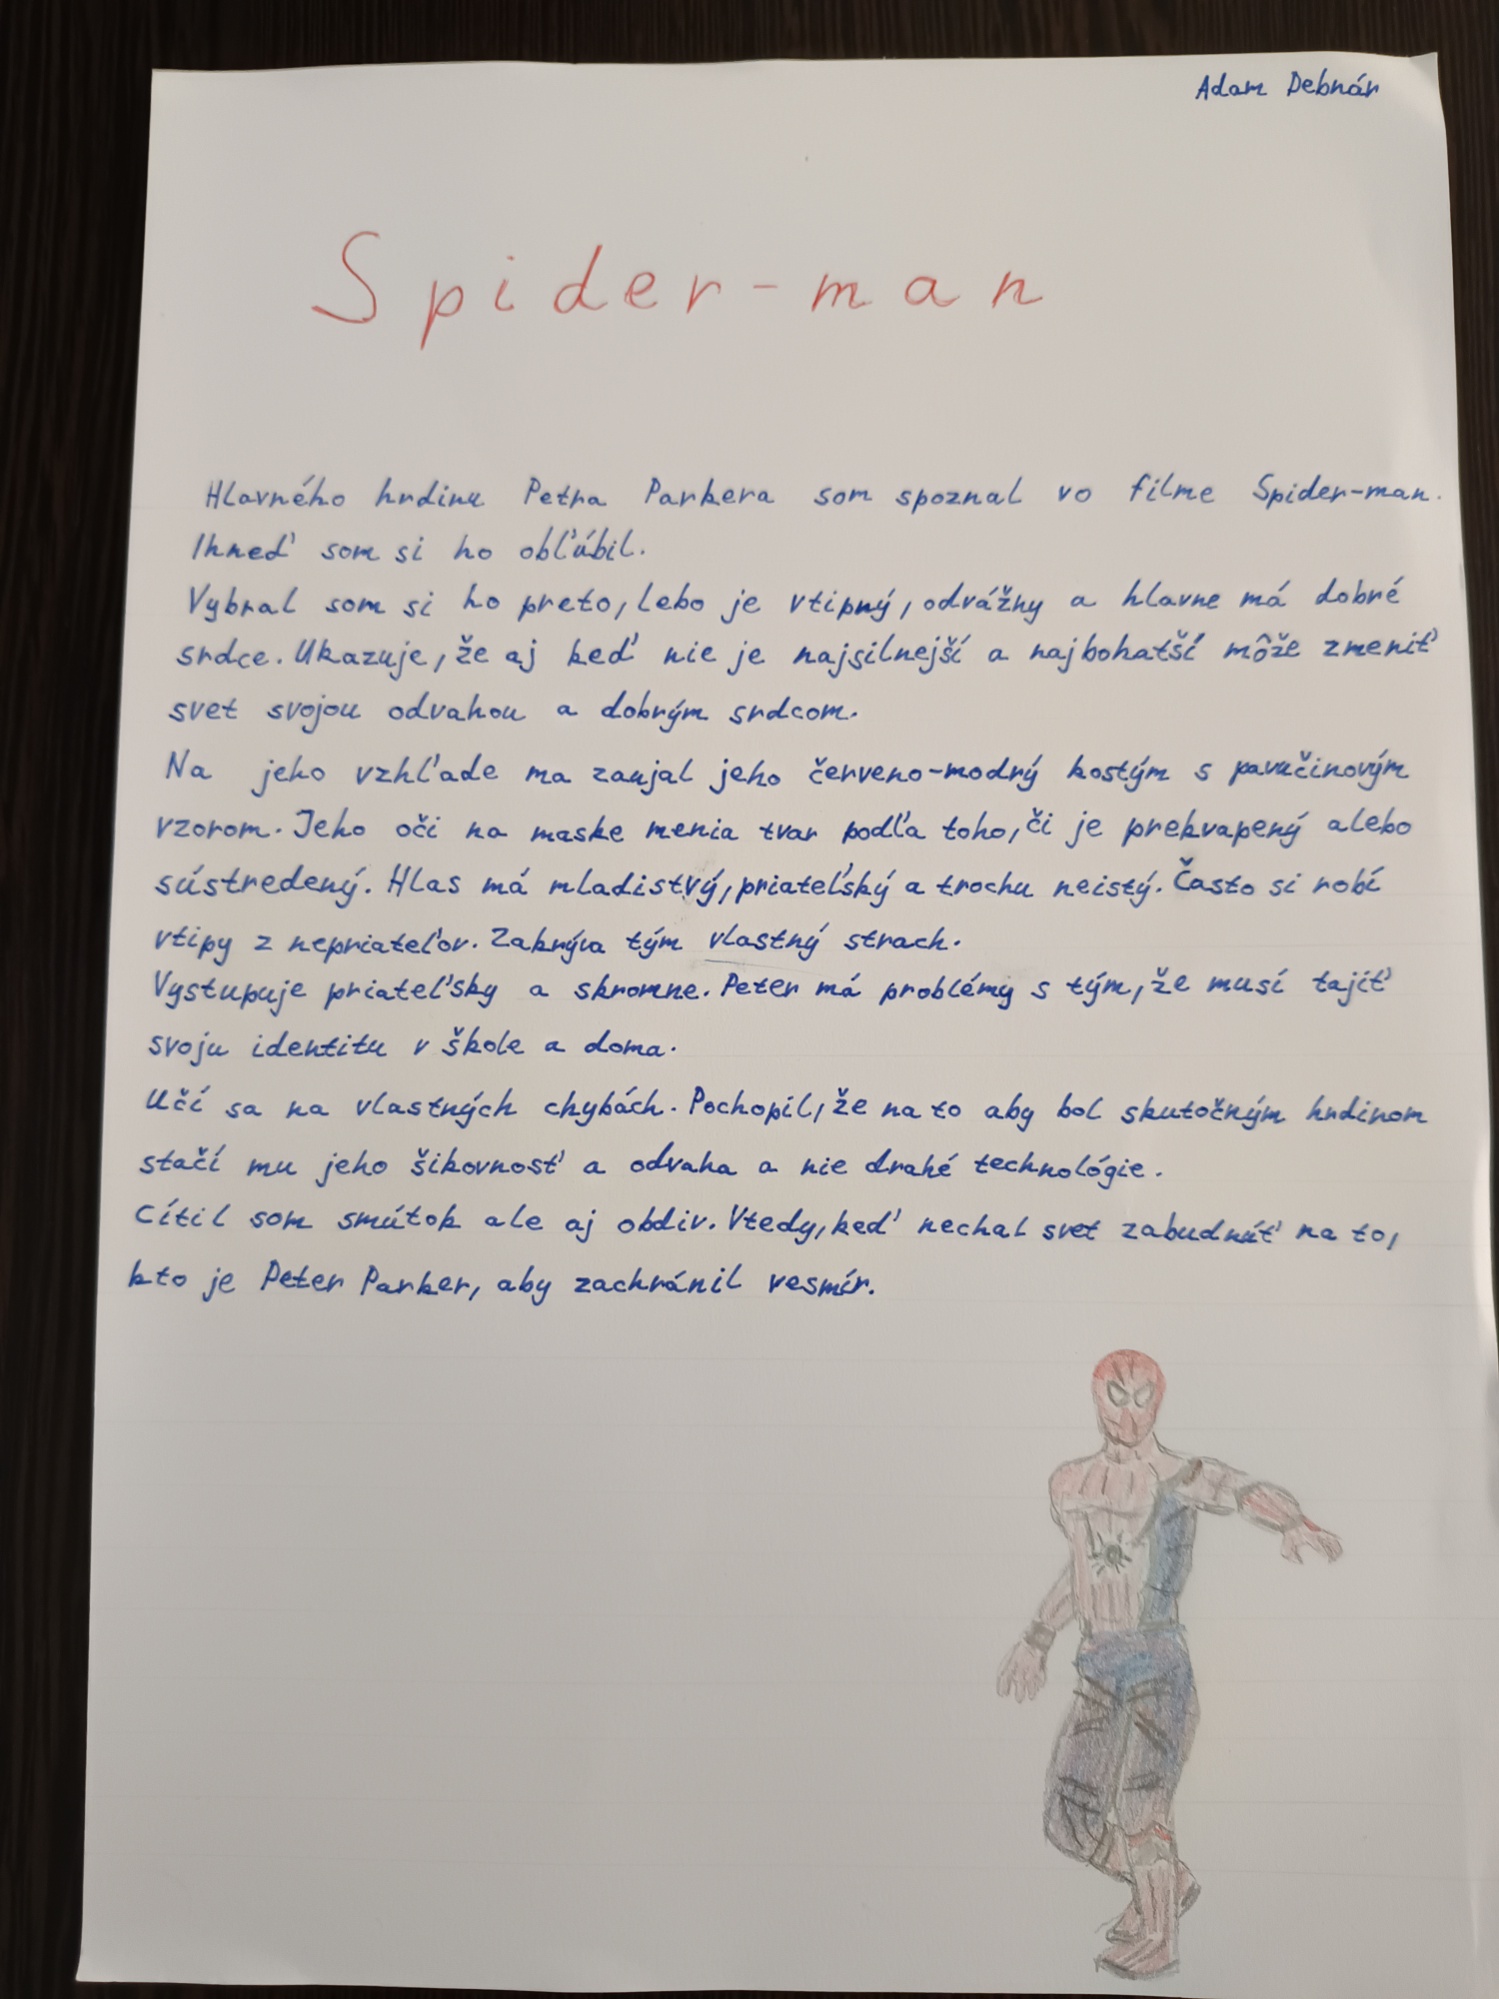 Adam Debnár
Spider-man
Hlavného hrdinu Petra Parkera som spoznal vo filme Spider-man.
Ihneď som si ho obľúbil.
Vybral som si ho preto, lebo je vtipný, odvážny a hlavne má dobré
srdce. Ukazuje, že aj keď nie je najsilnejší a najbohatší môže zmeniť
svet svojou odvahou a dobrým srdcom.
Na jeho vzhľade ma zaujal jeho červeno-modrý kostým s pavučinovým
vzorom. Jeho oči na maske menia tvar podľa toho, či je prekvapený alebo
sústredený. Hlas má mladistvý, priateľský a trochu neistý. Často si robí
vtipy z nepriateľov. Zakrýva tým vlastný strach.
Vystupuje priateľsky a skromne. Peter má problémy s tým, že musí tajiť
svoju identitu v škole a doma.
Učí sa na vlastných chybách. Pochopil, že na to aby bol skutočným hrdinom
stačí mu jeho šikovnosť a odvaha a nie drahé technológie.
Cítil som smútok ale aj obdiv. Vtedy, keď nechal svet zabudnúť na to,
kto je Peter Parker, aby zachránil vesmír.